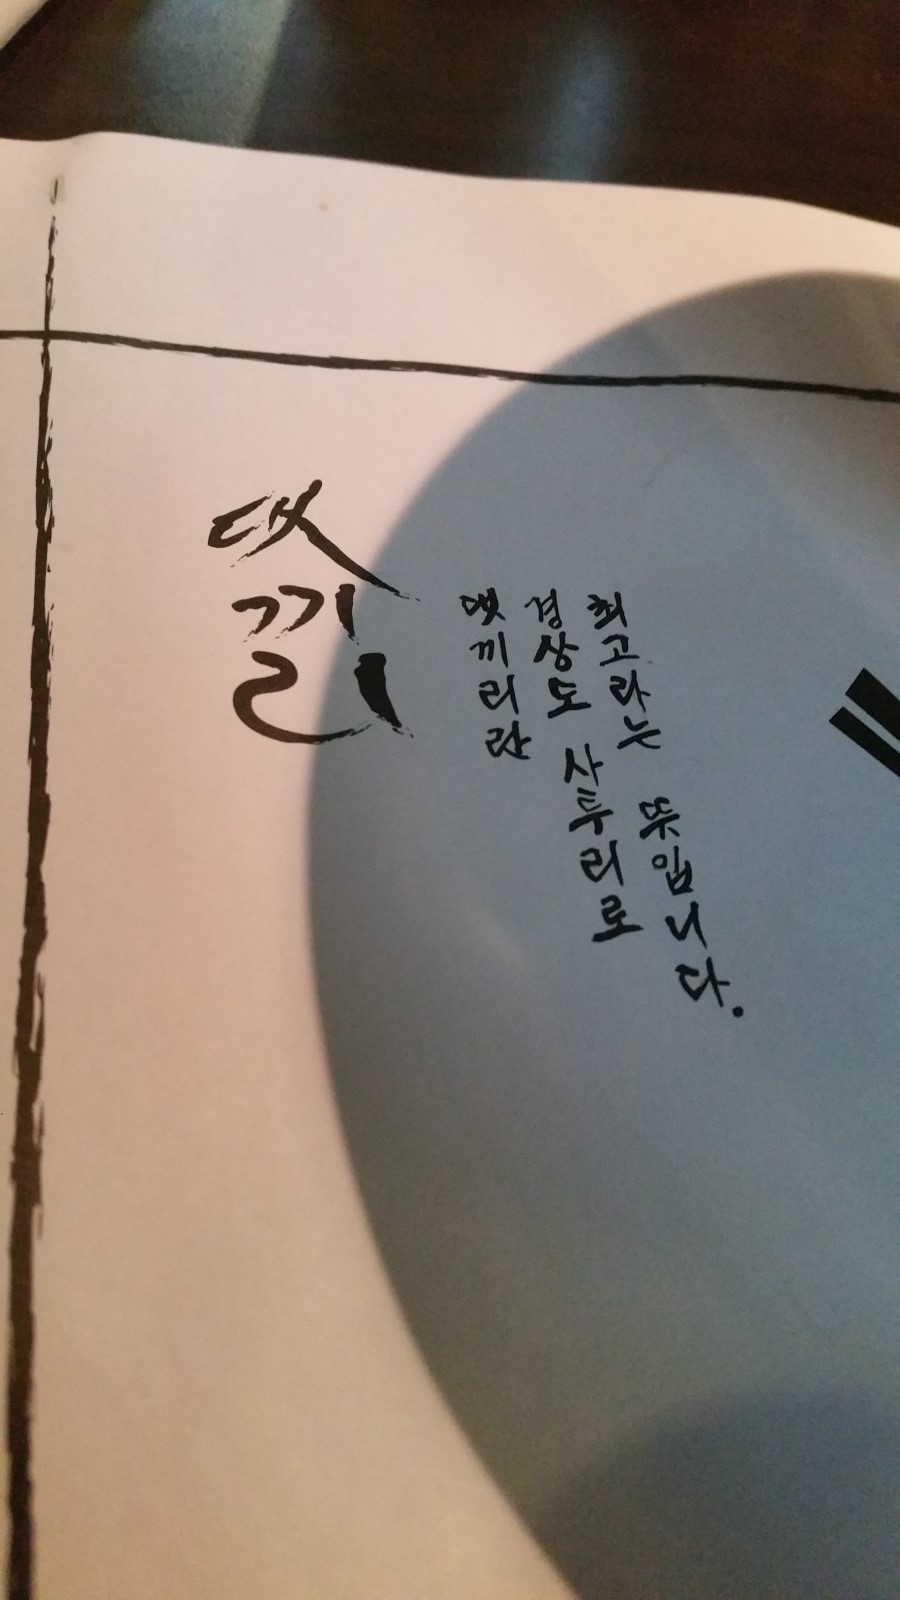 댓끼리
댓끼리란
경상도 사투리로
최고라는 뜻입니다.